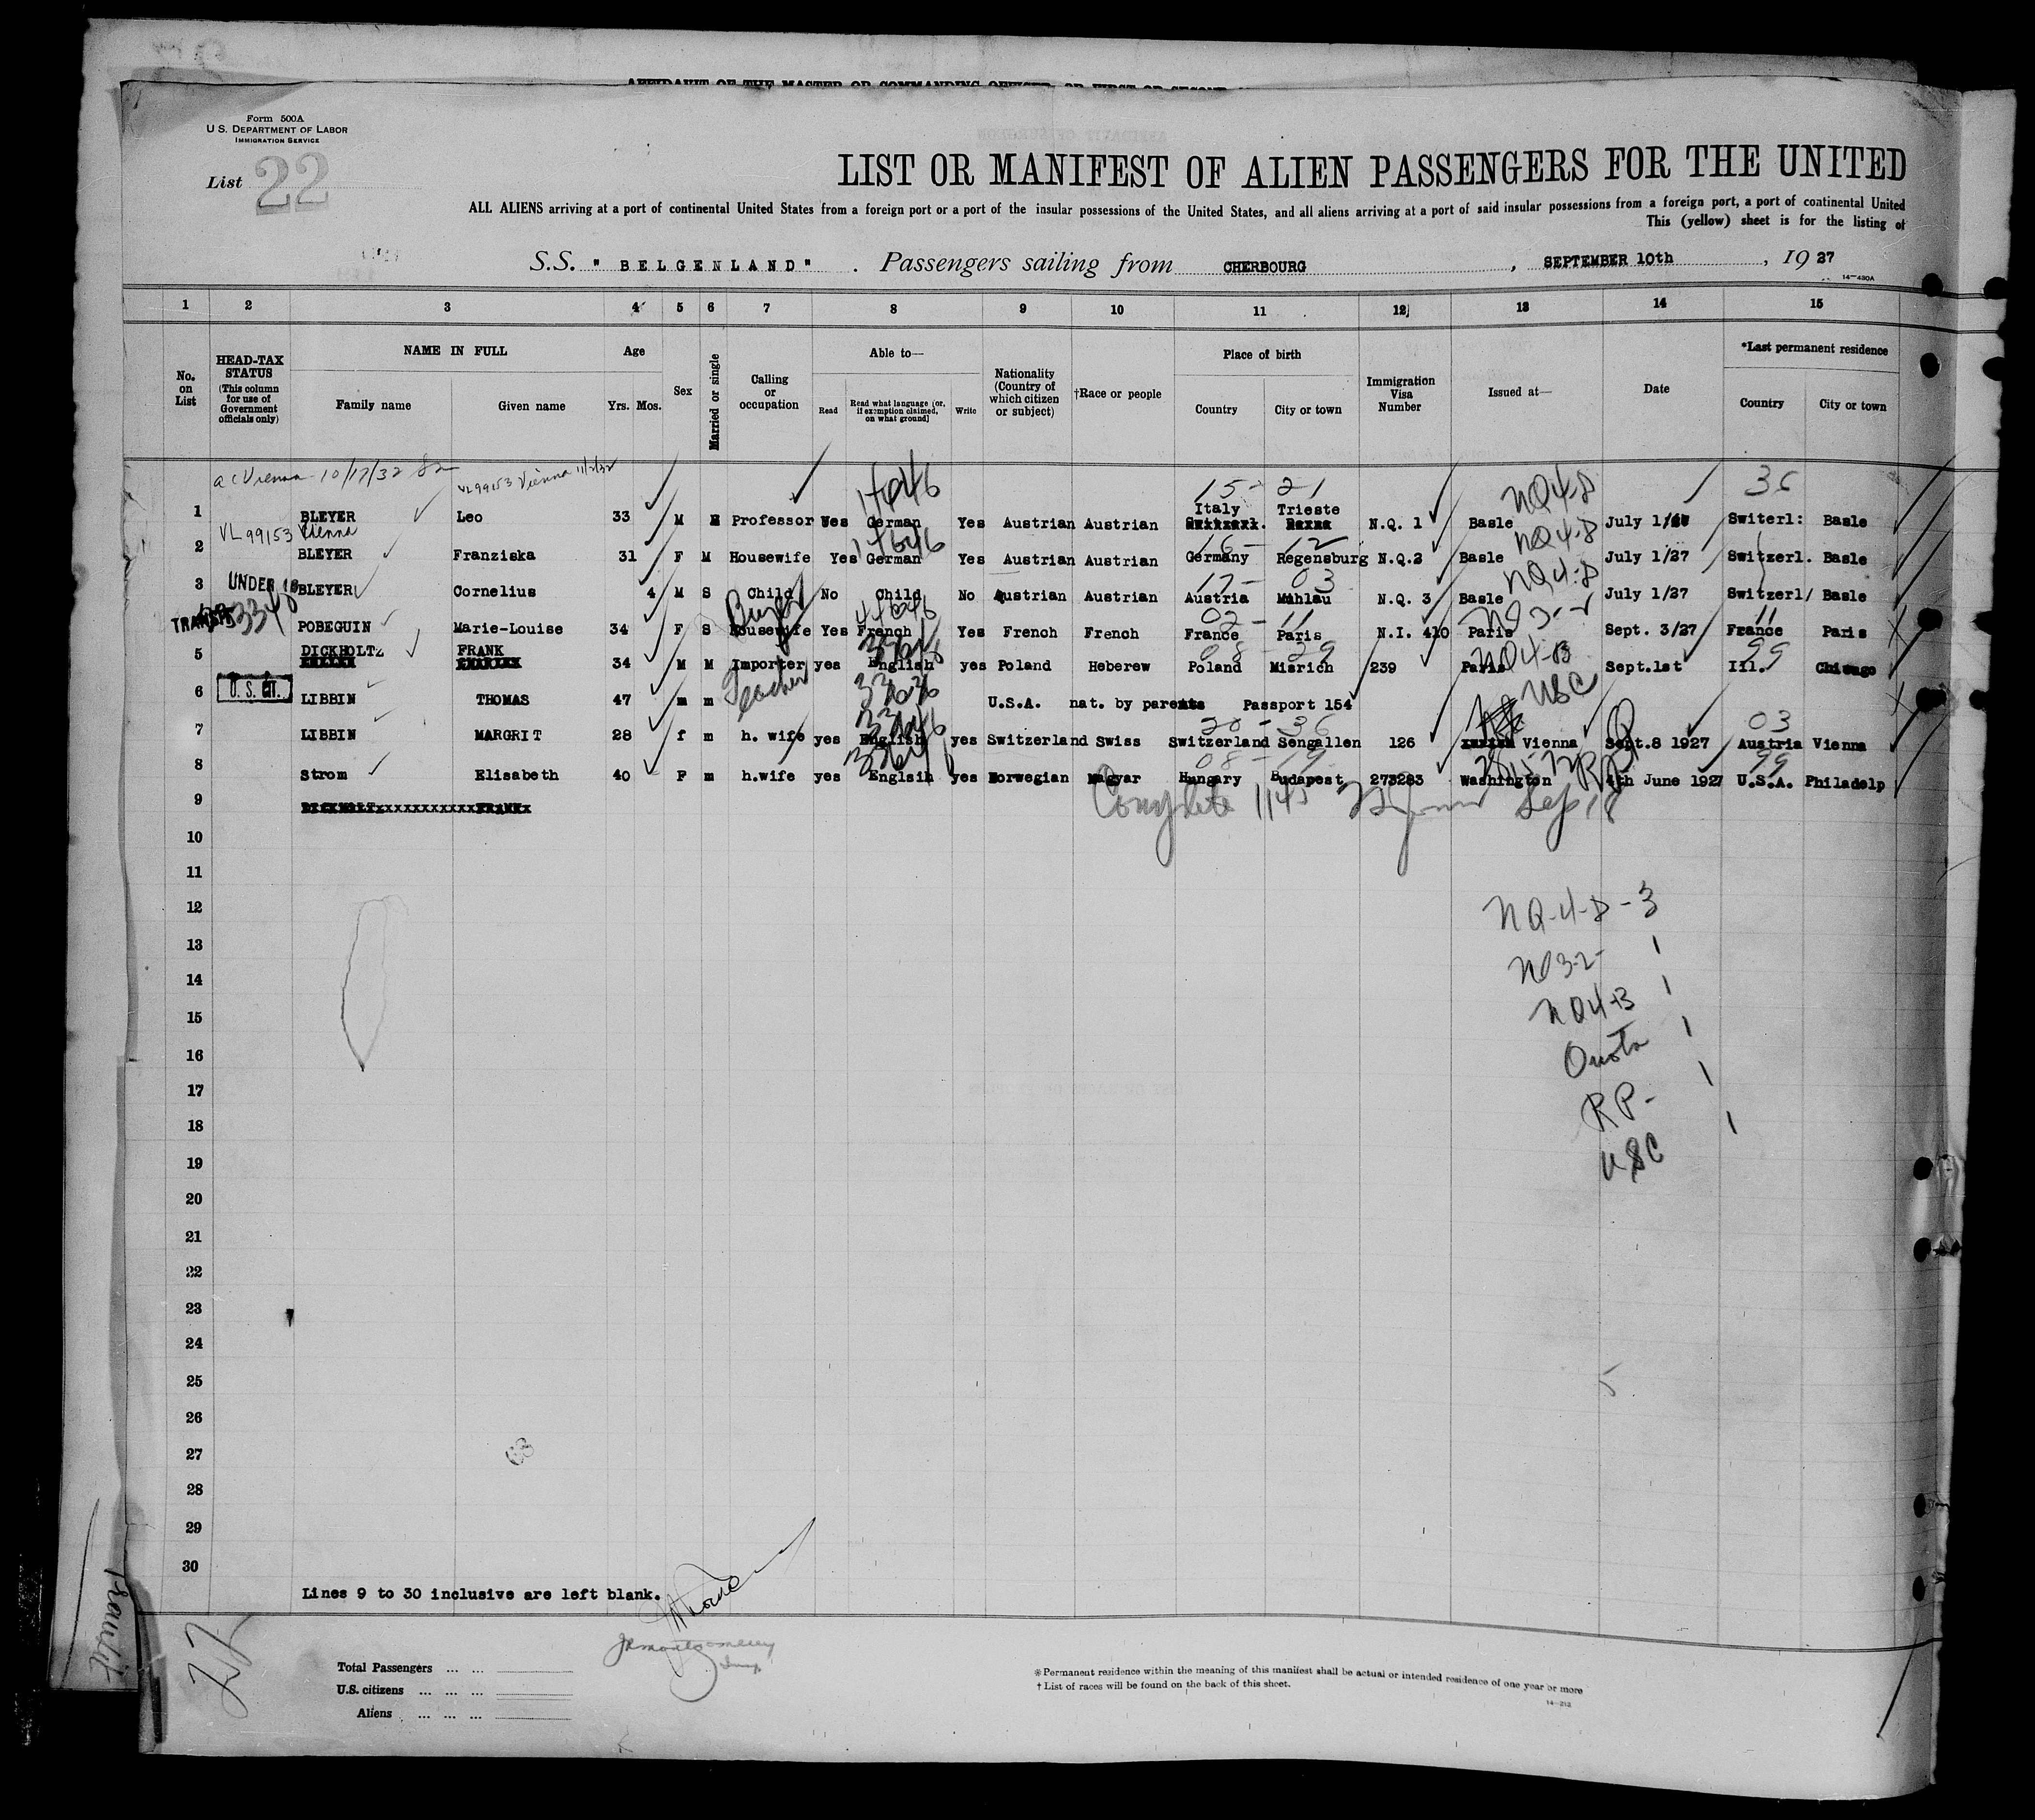 AFFIDAVIT OF THE MASTER OR COMMANDING OFFICER, OR FIRST OR SECOND
Form 500A
U.S. DEPARTMENT OF LABOR
IMMIGRATION SERVICE
List 22
LIST OR MANIFEST OF ALIEN PASSENGERS FOR THE UNITED
ALL ALIENS arriving at a port of continental United States from a foreign port or a port of the insular possessions of the United States, and all aliens arriving at a port of said insular possessions from a foreign port, a port of continental United
This (yellow) sheet is for the listing of
S.S. "BELGENLAND" . Passengers sailing from CHERBOURG , SEPTEMBER 10th , 19 27
14—430A
1 2 3 4 5 6 7 8 9 10 11 12 13 14 15
No. on List
HEAD-TAX STATUS (This column for use of Government officials only)
NAME IN FULL
Family name Given name
Age
Yrs. Mos.
Sex
Married or single
Calling or occupation
Able to—
Read Read what language [or, if exemption claimed, on what ground] Write
Nationality (Country of which citizen or subject)
†Race or people
Place of birth
Country City or town
Immigration Visa Number
Issued at—
Date
*Last permanent residence
Country City or town
ac Vienna 10/17/32 VL99153 Vienna 11/2/32
15- 21 NQ4-8 36
1 BLEYER Leo 33 M M Professor Yes German Yes Austrian Austrian Italy Trieste N.Q. 1 Basle July 1/27 Switerl: Basle
VL 99153 Vienna
16- 12 NQ4-8
2 BLEYER Franziska 31 F M Housewife Yes German Yes Austrian Austrian Germany Regensburg N.Q.2 Basle July 1/27 Switzerl. Basle
17- 03 NQ4-8
3 UNDER 16 BLEYER Cornelius 4 M S Child No Child No Austrian Austrian Austria Mühlau N.Q. 3 Basle July 1/27 Switzerl/ Basle
02- 11 NO3-2 11
TRANSIT POBEGUIN Marie-Louise 34 F S Housewife Buyer Yes French Yes French French France Paris N.I. 410 Paris Sept. 3/27 France Paris
08- 29 NQ4-B 99
5 DICKHOLTZ FRANK 34 M M Importer yes English yes Poland Heberew Poland Misrich 239 Paris Sept.1st Ill. Chicago
6 U. S. CIT. LIBBIN THOMAS 47 m m Teacher U.S.A. nat. by parents Passport 154 USC
20- 36 Q 03
7 LIBBIN MARGRIT 28 f m h. wife yes English yes Switzerland Swiss Switzerland Sengallen 126 Vienna Sept.8 1927 Austria Vienna
08- 19 RP 99
8 Strom Elisabeth 40 F m h.wife yes Englsih yes Norwegian Magyar Hungary Budapest 273283 Washington 4th June 1927 U.S.A. Philadelp
9 DICKHOLTxxxxxxxxxxxFRANKx
Complete 1145 Sep 18
10
11
12 NQ-4-8-3
13 NO3-2- 1
14 NQ4-B 1
15
16 Quota 1
17 RP- 1
18 USC 1
19
20
21
22
23
24
25
26
27
28
29
30
Lines 9 to 30 inclusive are left blank.
JRMontgomery
Total Passengers ... ...
U.S. citizens ... ... ...
Aliens ... ... ...
*Permanent residence within the meaning of this manifest shall be actual or intended residence of one year or more
†List of races will be found on the back of this sheet.
14—212